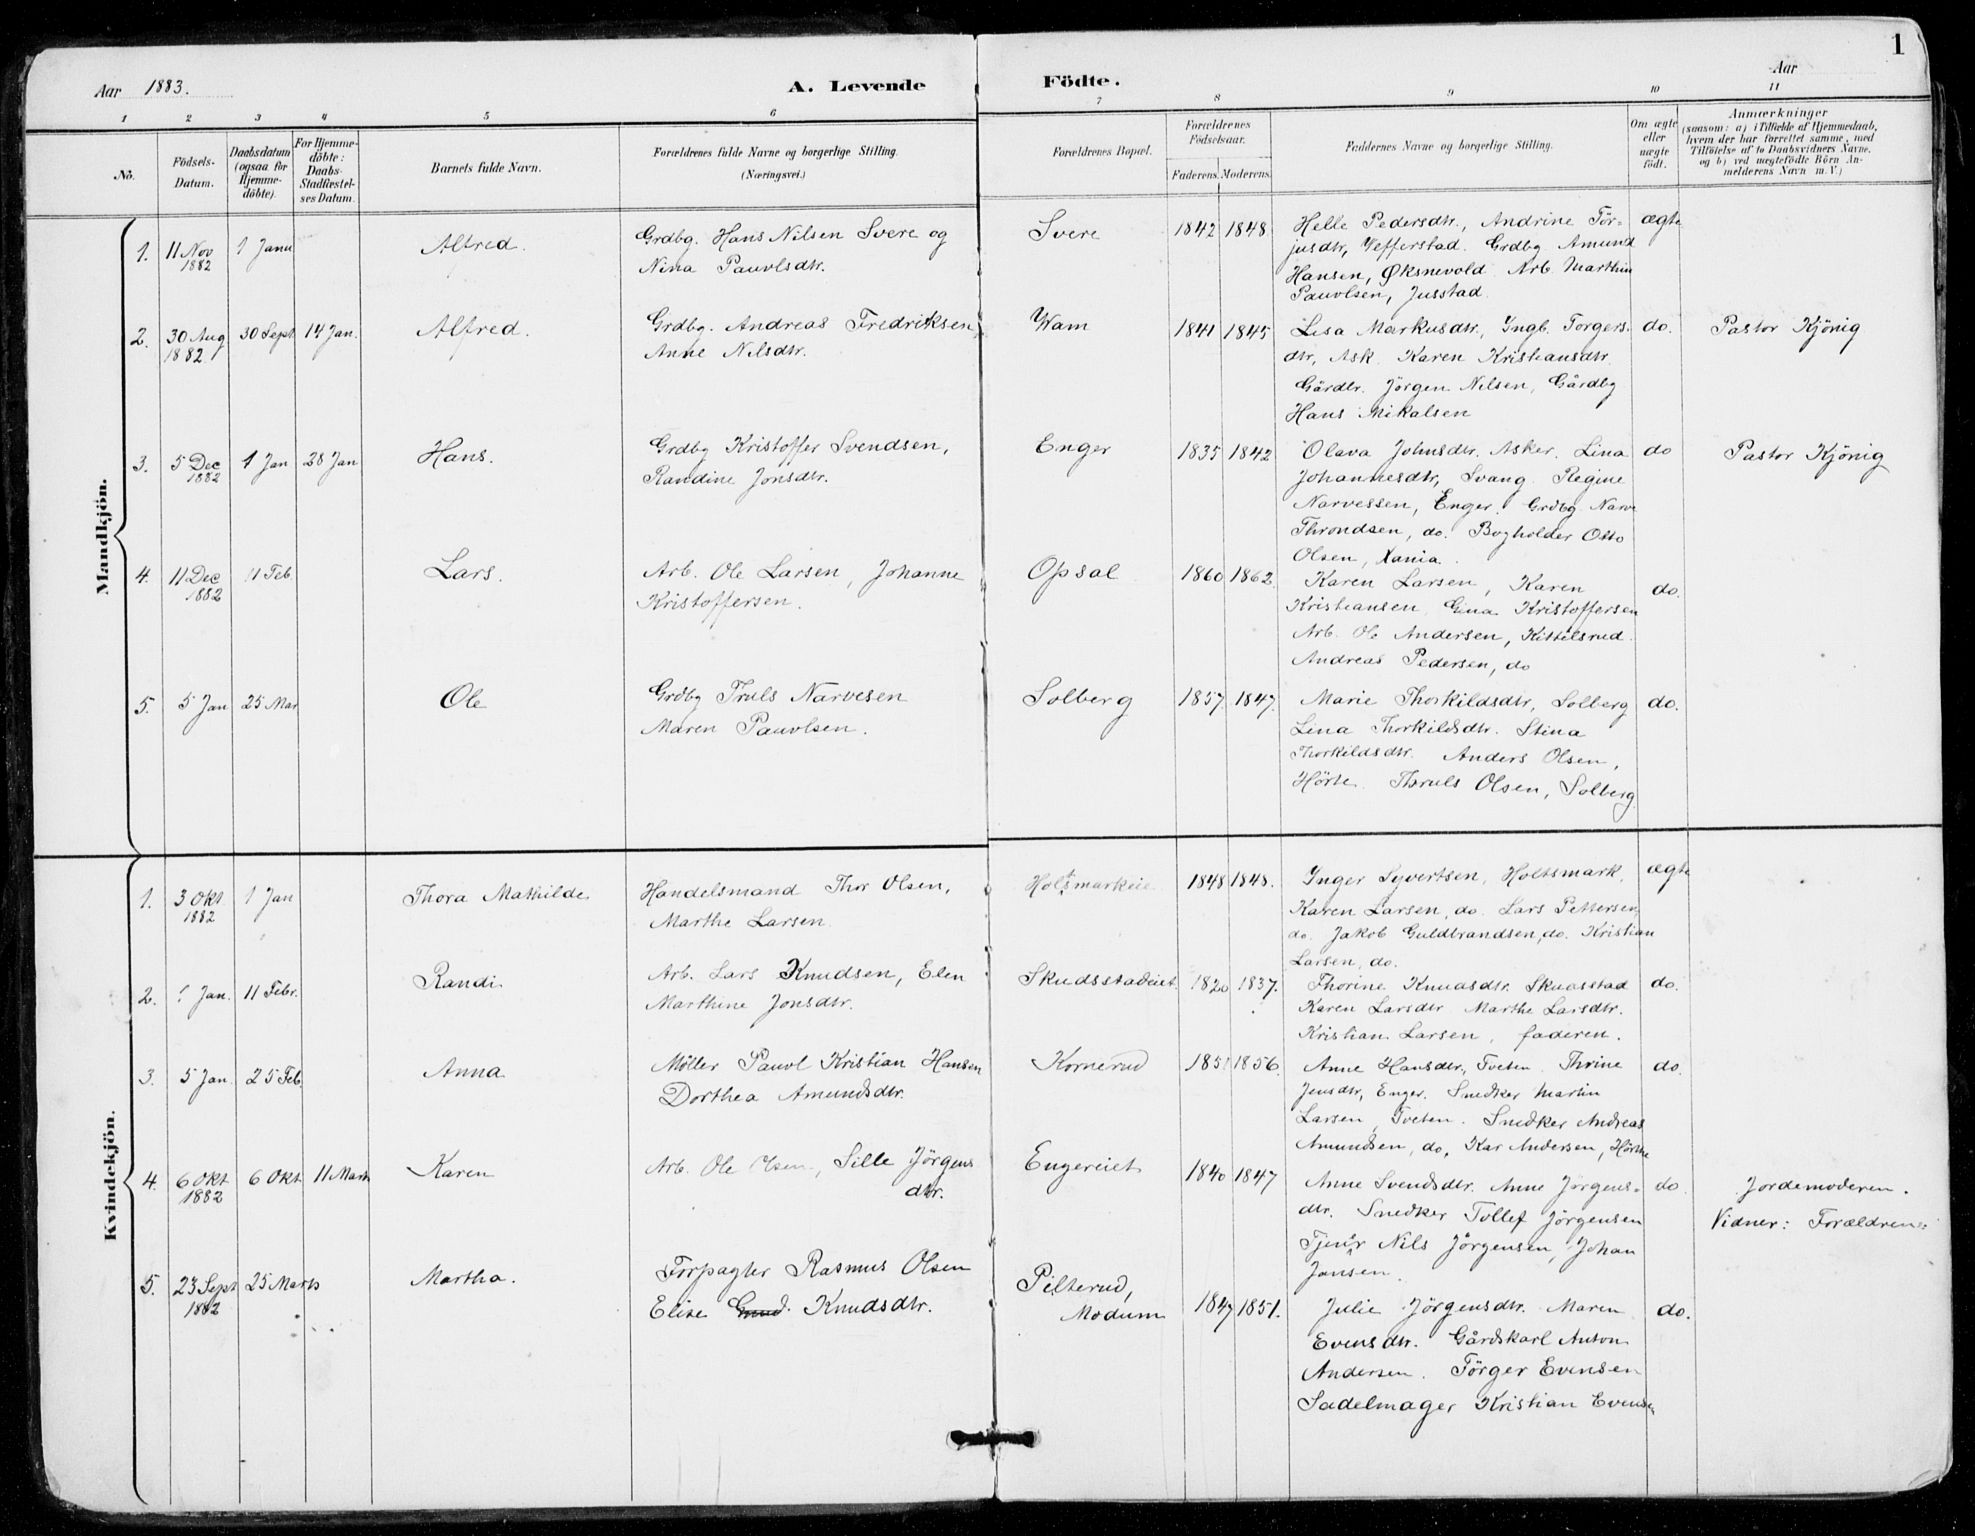 1
Aar 1883. A. Levende Födte. Aar
1 2 3 4 5 6 7 8 9 10 11
No. Födsels-Datum. Daabsdatum (ogsaa for Hjemme-döbte). For Hjemme-döbte: Daabs-Stadfæstel-ses Datum. Barnets fulde Navn. Forældrenes fulde Navne og borgerlige Stilling. (Næringsvei.) Forældrenes Bopæl. Forældrenes Födselsaar. Faderens. Moderens. Faddernes Navne og borgerlige Stilling. Om ægte eller uægte födt. Anmærkninger (saasom: a) i Tilfælde af Hjemmedaab, hvem der har forrettet samme, med Tilföielse af to Daabsvidners Navne, og b) ved uægtefödte Börn An-melderens Navn m. V.)
Mandkjön.
1. 11 Nov 1882 1 Janu Alfred. Grdbg. Hans Nilsen Svere og Svere 1842 1848 Helle Pedersdtr., Andrine Tör- ægte
Nina Pauvlsdtr. jusdtr, Vefferstad. Grdbg Amund
Hansen, Øksnevold. Arb. Marthin
Pauvlsen, Jusstad.
2. 30 Aug 1882. 30 Sept 14 Jan. Alfred. Grdbg. Andreas Fredriksen, Wam 1841 1845 Lisa Markusdtr., Ingb. Torgers- do. Pastor Kjönig
Anne Nilsdtr. dtr, Ask. Karen Kristiansdtr.
Gårdbr. Jörgen Nilsen, Gårdbg
Hans Mikalsen
3. 5 Dec 1882 1 Jan 28 Jan Hans. Grdbg Kristoffer Svendsen, Enger 1835 1842 Olava Johnsdtr. Asker. Lina do Pastor Kjönig
Randine Jonsdtr. Johannesdtr, Svang. Regine
Narvessen, Enger. Grdbg. Narve
Throndsen, do. Bogholder Otto
Olsen, Xania.
4. 11 Dec 1882 11 Feb. Lars. Arb. Ole Larsen, Johanne Opsal 1860 1862. Karen Larsen, Karen do.
Kristoffersen. Kristiansen, Gina Kristoffersen
Arb. Ole Andersen, Kittelsrud.
Andreas Pedersen, do
5. 5 Jan 25 Mar Ole Grdbg Truls Narvesen Solberg 1857 1847. Marie Thorkildsdtr, Solberg do.
Maren Pauvlsen. Lina Thorkildsdtr. Stina
Thorkildsdtr. Anders Olsen,
Hörte. Thruls Olsen, Solberg
Kvindekjön.
1. 3 Okt. 1882 1 Jan Thora Mathilde Handelsmand Thor Olsen, Holtsmarkeie 1848 1848. Inger Syvertsen, Holtsmark, ægte
Marthe Larsen. Karen Larsen, do. Lars Pettersen,
do. Jakob Guldbrandsen, do. Kristian
Larsen, do.
2. Jan. 11 Febr. Randi Arb. Lars Knudsen, Elen Skudsstadeiet. 1820 1837. Thorine Knudsdtr. Skudsstad do.
Marthine Jonsdtr. Karen Larsdtr Marthe Larsdtr.
Kristian Larsen, faderen.
3. 5 Jan. 25 Feb. Anna Möller Pauvl Kristian Hansen Kornerud 1851 1856. Anne Hansdtr, Tveten. Thrine do.
Dorthea Amundsdtr. Jensdtr, Enger. Snedker Martin
Larsen, Tveten. Snedker Andreas
Amundsen, do, Kar Andersen, Hörthe
4. 6 Okt 1882 6 Okt 11 Marts Karen Arb. Ole Olsen, Sille Jörgens Engereiet 1840 1847 Anne Svendsdtr. Anne Jörgens- do Jordemoderen.
dtr. dtr. Snedker Tollef Jörgensen Vidner: Forældrene
Tjenr Nils Jörgensen, Johan
Jansen.
5. 23 Sept 1882 25 Marts Martha. Forpagter Rasmus Olsen Pilterud, Modum 1847 1851. Julie Jörgensdtr. Maren do.
Elise Gud. Knudsdtr. Evensdtr. Gårdskarl Anton
Andersen. Törger Evensen
Sadelmager Kristian Evensen